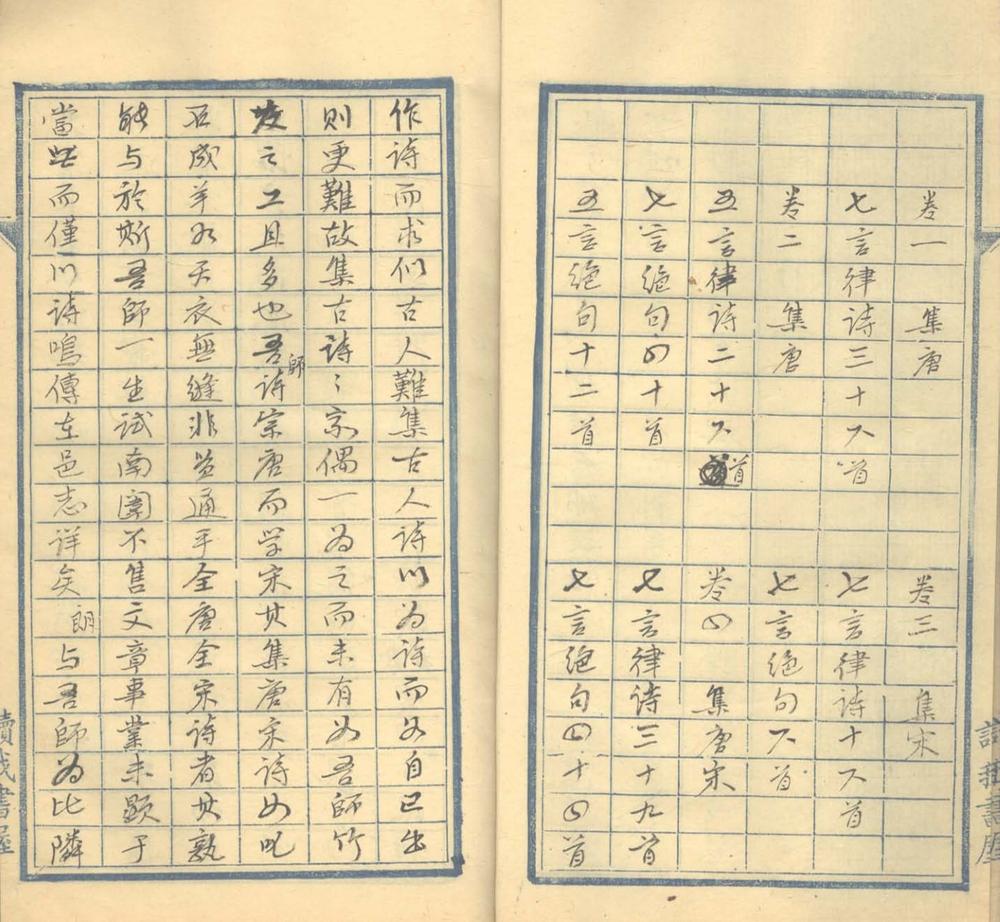 卷一　集唐
七言律诗三十六首
卷二　集唐
五言律诗二十六首
七言绝句四十首
五言绝句十二首
卷三　集宋
七言律诗十六首
七言绝句六首
卷四　集唐宋
七言律诗三十九首
七言绝句四十四首
作诗而求似古人難集古人诗以为诗而如自己出
則更難故集古诗々家偶一为之而未有如吾師竹
坡之工且多也吾師诗宗唐而学宋其集唐宋诗如叱
石成羊如天衣無縫非貫通乎全唐全宋诗者其孰
能与於斯吾師一生試南闈不售文章事業未顯于
當世而僅以诗鳴傳在邑志详矣朗与吾師为比隣
讀我書屋